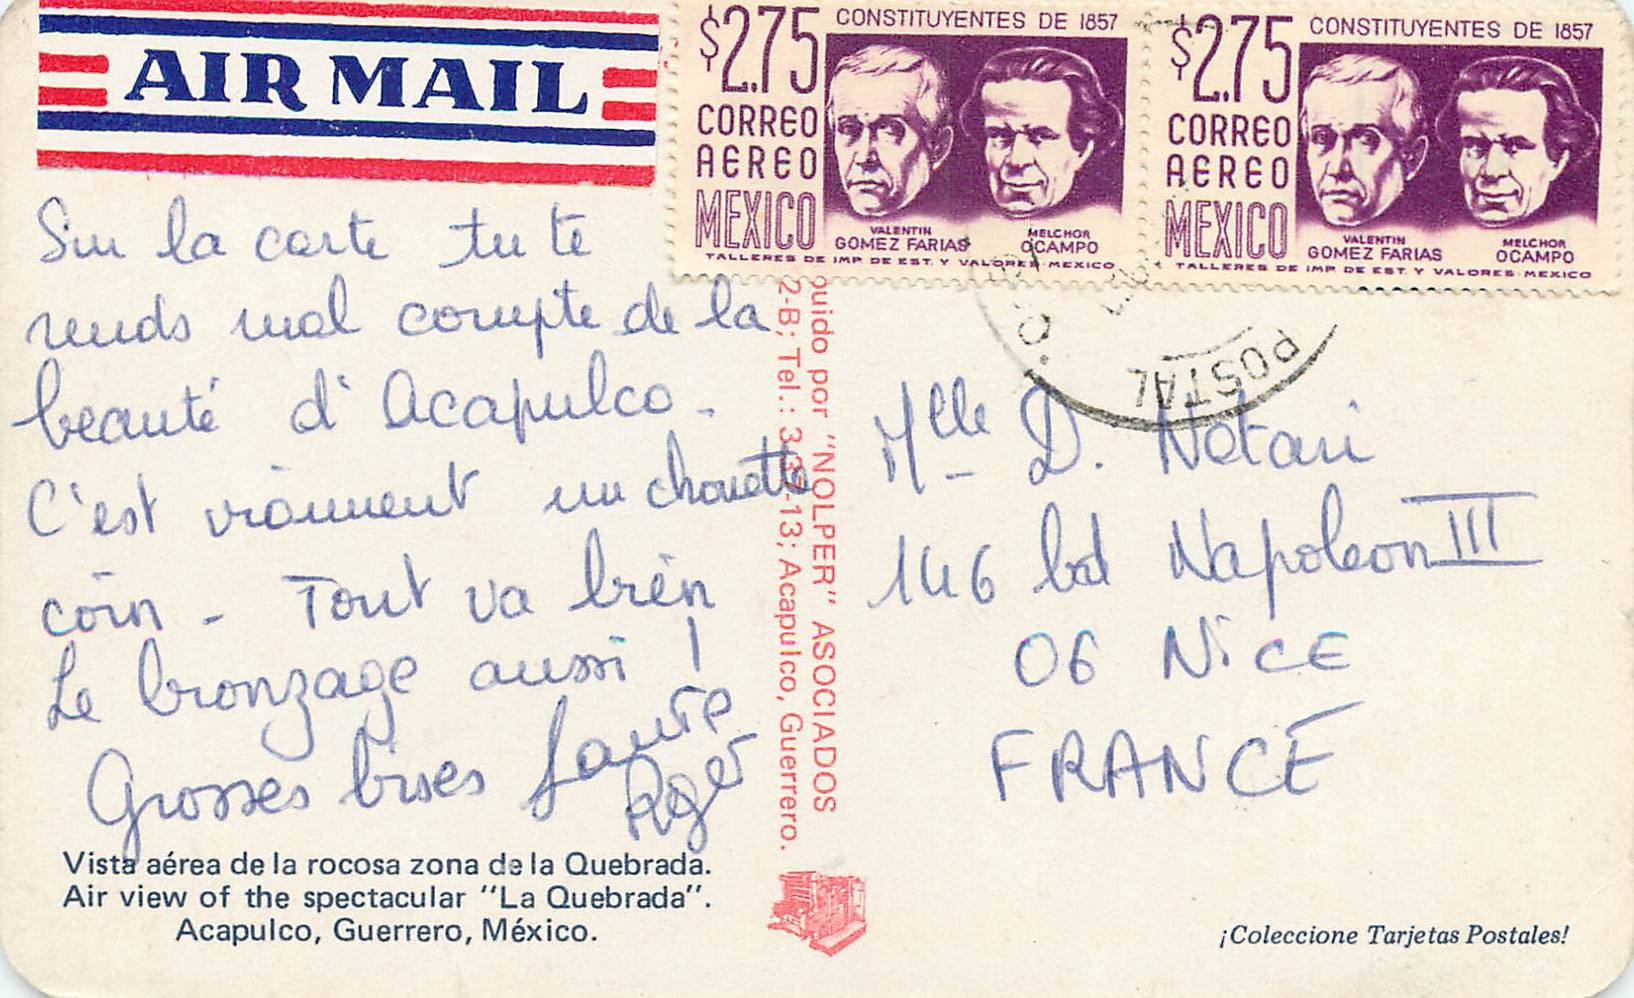 AIR MAIL
$2.75 CONSTITUYENTES DE 1857
CORREO
AEREO
MEXICO
VALENTIN
GOMEZ FARIAS
MELCHOR
OCAMPO
TALLERES DE IMP. DE EST. Y VALORES-MEXICO
$2.75 CONSTITUYENTES DE 1857
CORREO
AEREO
MEXICO
VALENTIN
GOMEZ FARIAS
MELCHOR
OCAMPO
TALLERES DE IMP. DE EST. Y VALORES-MEXICO
POSTAL
Sur la carte tu te
rends mal compte de la
beauté d'Acapulco.
C'est vraiment un chouette
coin - Tout va bien
Le bronzage aussi !
Grosses bises
Vista aérea de la rocosa zona de la Quebrada.
Air view of the spectacular "La Quebrada".
Acapulco, Guerrero, México.
buido por "NOLPER" ASOCIADOS
2-B; Tel.: 3-37-13; Acapulco, Guerrero.
Mlle D. Notari
146 bd Napoleon III
06 NiCE
FRANCE
¡Coleccione Tarjetas Postales!